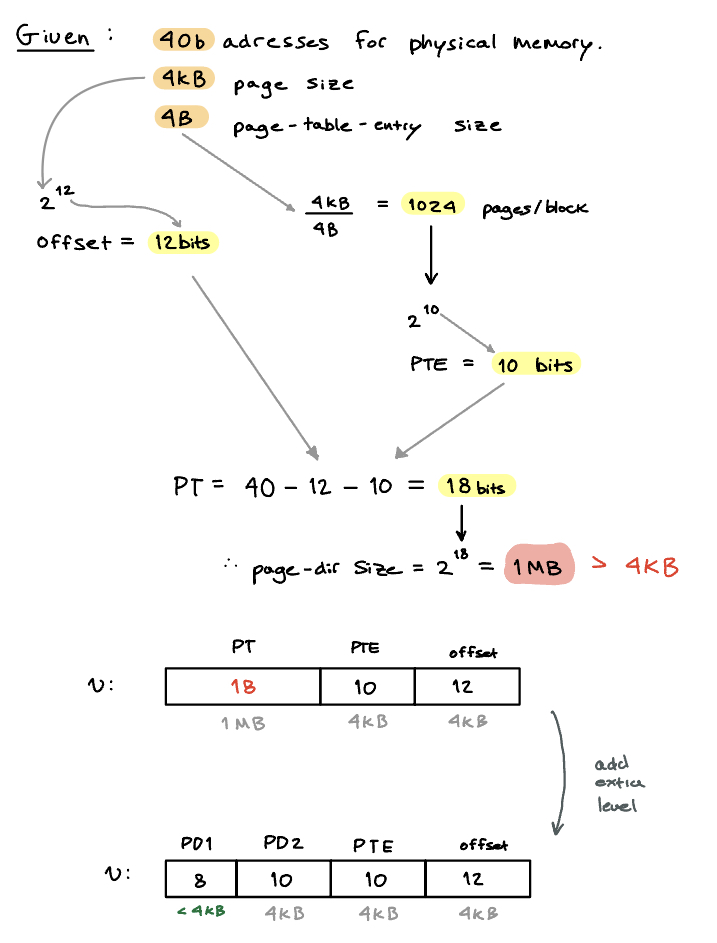 Given : 40b adresses for physical memory.
4kB page size
4B page-table-entry size
2^12
offset = 12bits
4kB / 4B = 1024 pages/block
2^10
PTE = 10 bits
PT = 40 - 12 - 10 = 18 bits
∴ page-dir size = 2^18 = 1MB > 4KB
PT PTE offset
v: 18 10 12
1MB 4kB 4kB
add
extra
level
PD1 PD2 PTE offset
v: 8 10 10 12
<4kB 4kB 4kB 4kB